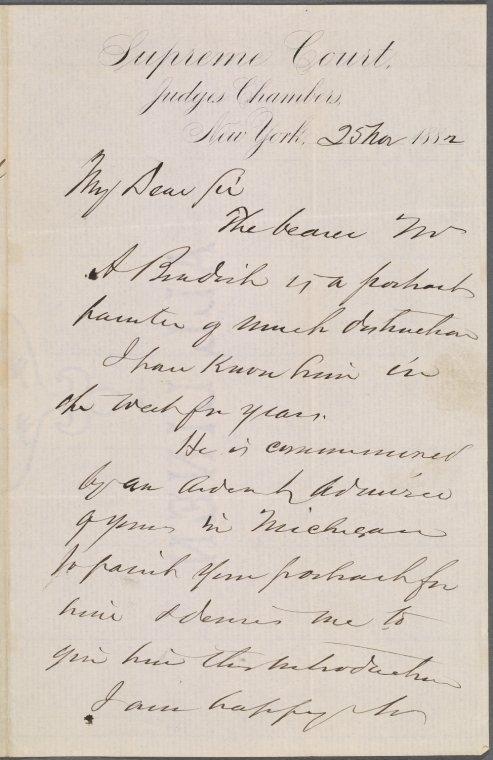 Supreme Court,
Judges Chambers,
New York, 25 Nov 1882
My Dear Sir
The bearer Mr
A Bradish is a portrait
painter of much distinction
I have known him in
the West for years.
He is commissioned
by an ardent admirer
of yours in Michigan
to paint your portrait for
him & desires me to
give him this introduction
I am happy to